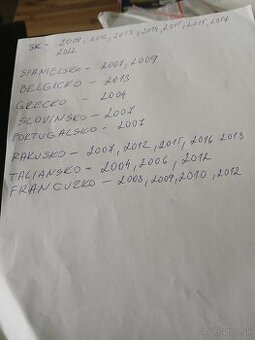 SK - 2009, 2012, 2013, 2014, 2015, 2015, 2017
2022
SPANIELSKO - 2007, 2009
BELGICKO - 2013
GRECKO - 2004
SLOVINSKO - 2007
PORTUGALSKO - 2007
RAKUSKO - 2007, 2012, 2015, 2016 2013
TALIANSKO - 2004, 2006, 2012
FRANCUZKO - 2008, 2009, 2010, 2012